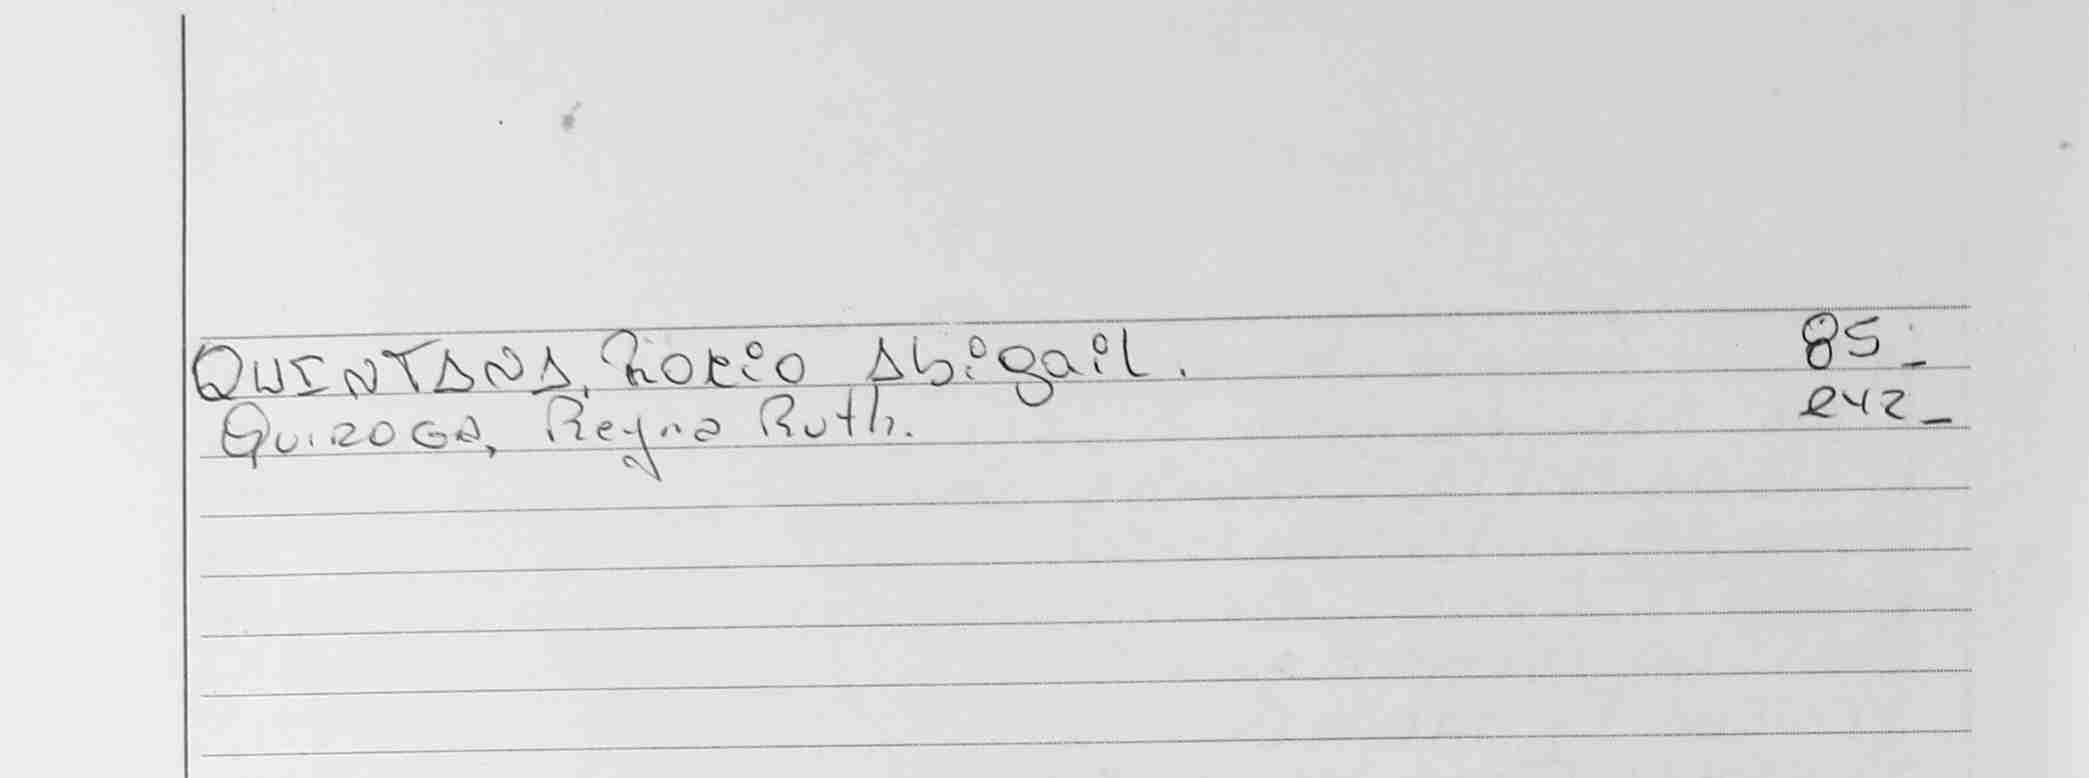 QUINTANA, Rocio Abigail. 85_
QuiROGA, Reyna Ruth. 242_